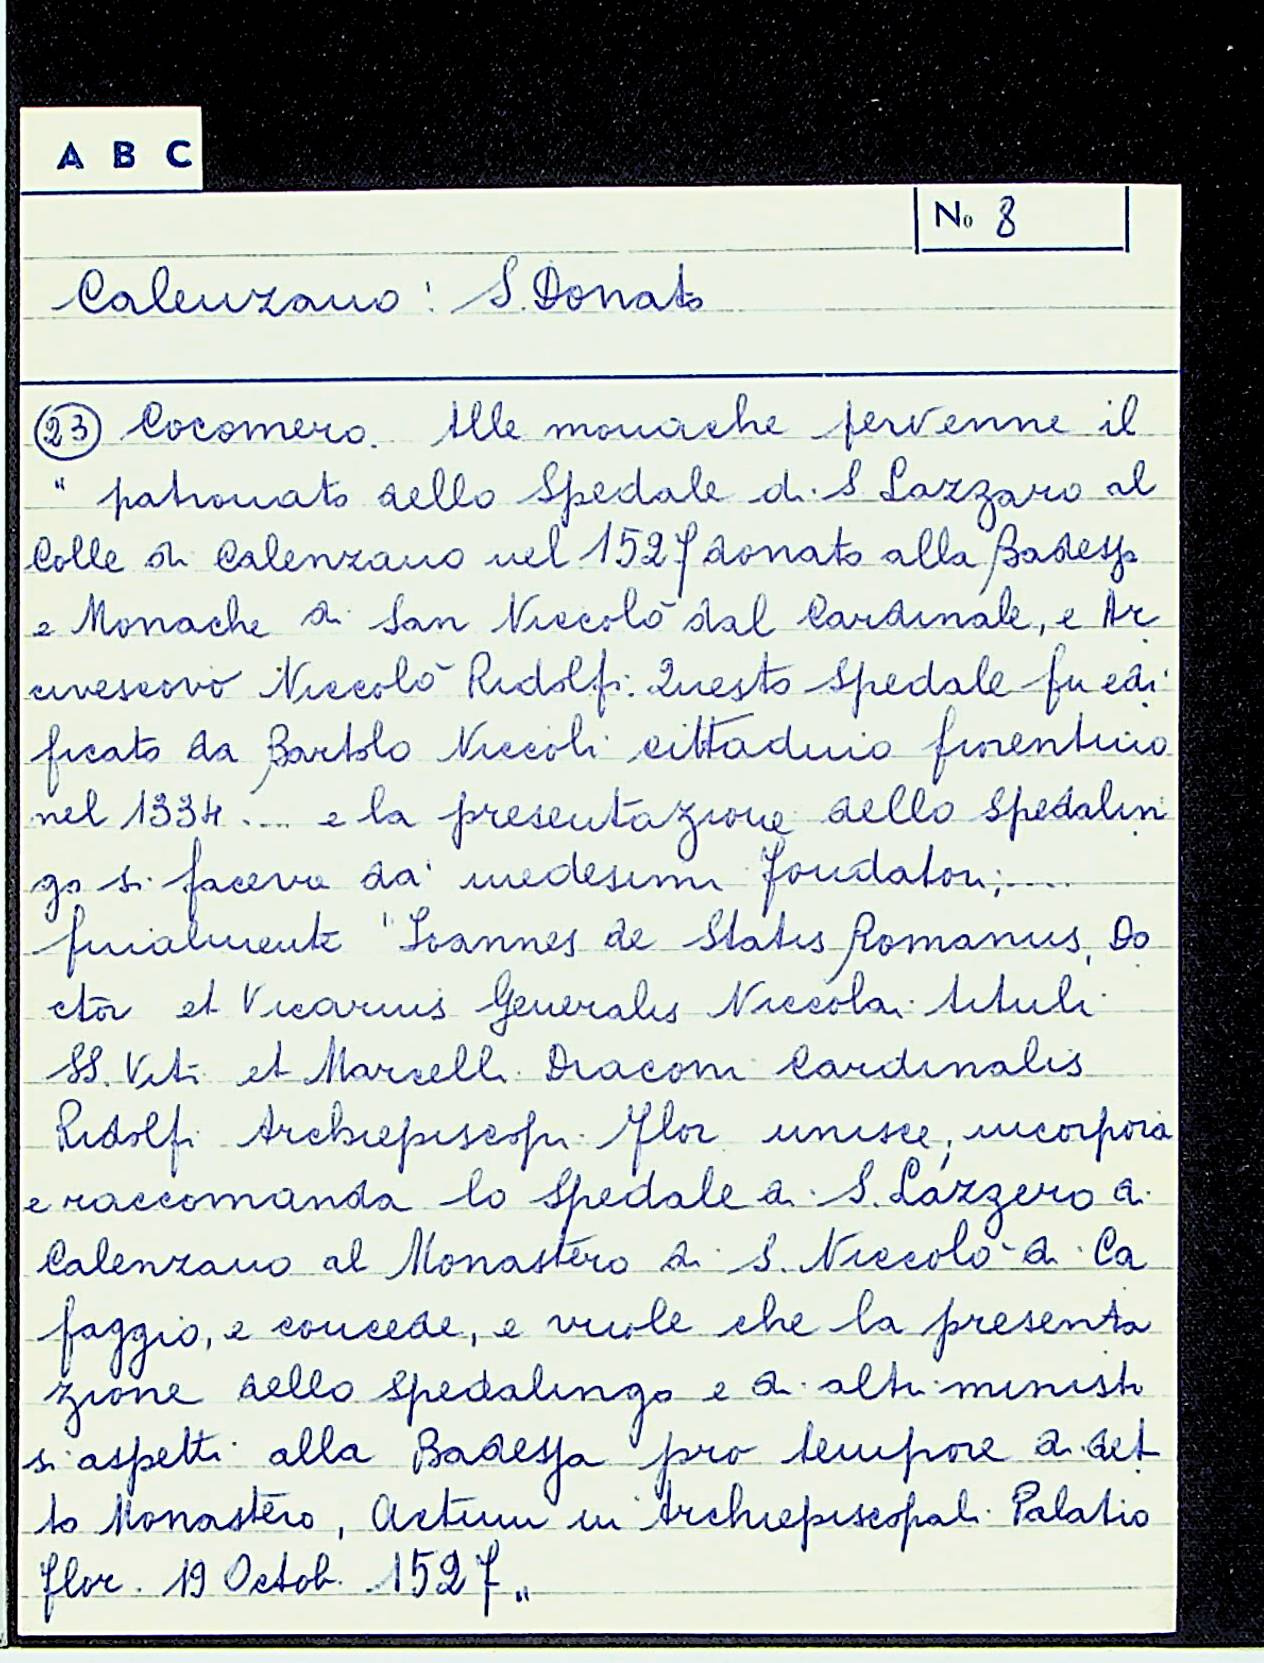 A B C
No 8
Calenzano: S. Donato
23 Cocomero. Alle monache pervenne il
" patronato dello Spedale di S Lazzaro al
Colle di Calenzano nel 1527 donato alla Badessa
e Monache di San Niccolò dal Cardinale, e Ar
civescovo Niccolò Ridolfi. Questo Spedale fu edi
ficato da Bartolo Niccoli cittadino fiorentino
nel 1334 .... e la presentazione dello Spedalin
go si faceva da' medesimi fondatori; ....
finalmente "Ioannes de Statis Romanus, Do
ctor et Vicarius Generalis Niccolai tituli
SS. Viti et Marcelli Diaconi Cardinalis
Ridolfi Archiepiscopi Flor unisce, incorpora
e raccomanda lo Spedale di S. Lazzero di
Calenzano al Monastero di S. Niccolò di Ca
faggio, e concede, e vuole che la presenta
zione dello Spedalingo e di altri ministri
si aspetti alla Badessa pro tempore di det
to Monastero, Actum in Archiepiscopali Palatio
flor. 19 Octob. 1527„